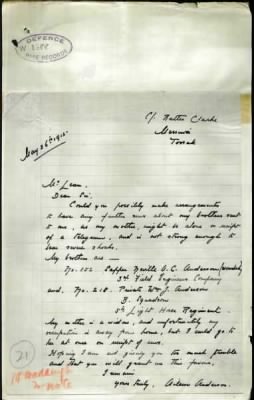 DEFENCE
BASE RECORDS
C/. Walter Clarke
Toorak
May 26th 1915
Mr Lean
Dear Sir,
Could you possibly make arrangements
to have any further news about my brothers sent
to me, as my mother, might be alone on receipt
of a telegram, and is not strong enough to
bear severe shocks.
My brothers are —
No. 152 Sapper Neville A. C. Anderson (wounded)
3rd Field Engineer Company
and. No. 218. Private Wm J. Anderson
B. Squadron
8th Light Horse Regiment.
My mother is a widow, and unfortunately
reception is away from home, but I could go to
her at once on receipt of news.
Hoping I am not giving you too much trouble
and that you will grant me this favour,
I am
yours truly, Anderson.
21
to note